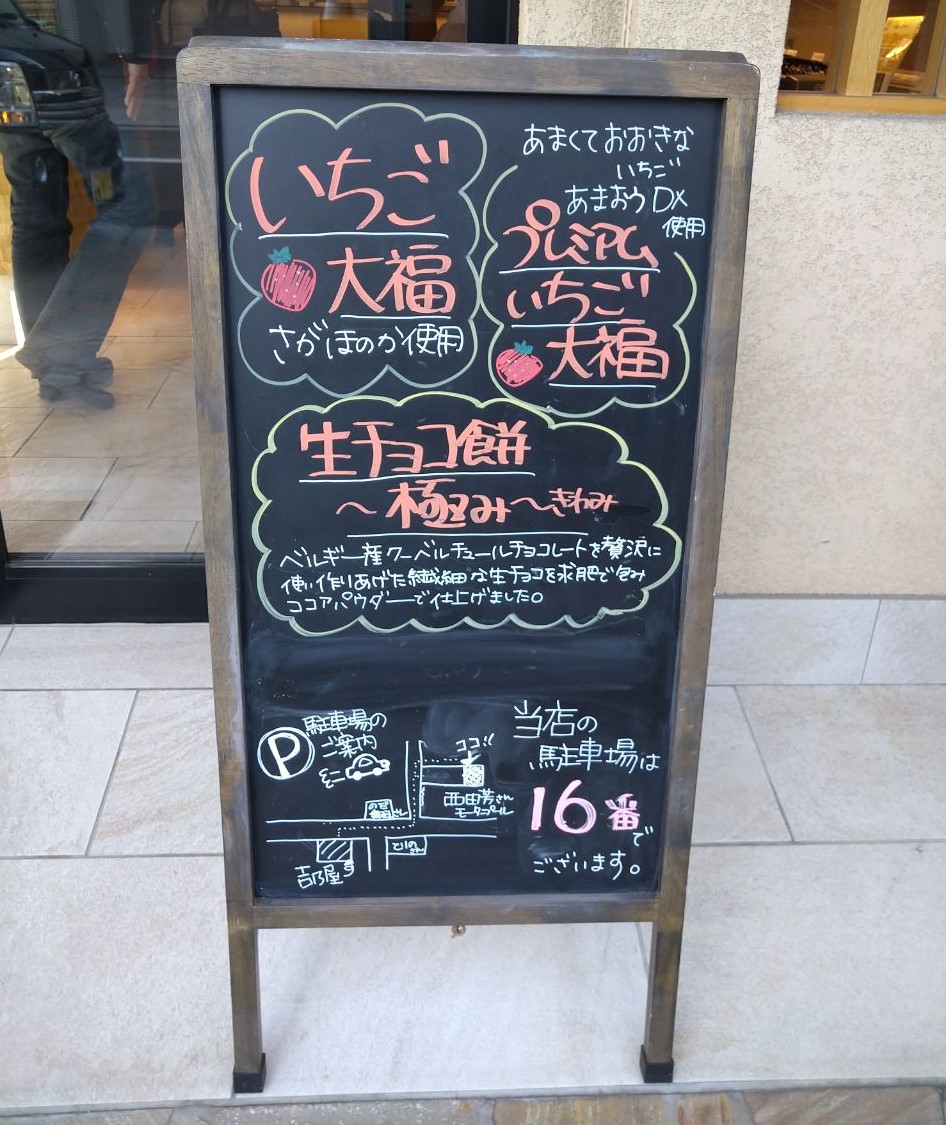 いちご
大福
さがほのか使用
あまくておおきな
いちご
あまおうDX
使用
プレミアム
いちご
大福
生チョコ餅
～極み～きわみ
ベルギー産クーベルチュールチョコレートを贅沢に
使い作りあげた繊細な生チョコを求肥で包み
ココアパウダーで仕上げました。
P
駐車場の
ご案内
ココ!!
西田芳さん
モータプール
吉乃屋
当店の
駐車場は
16番で
ございます。